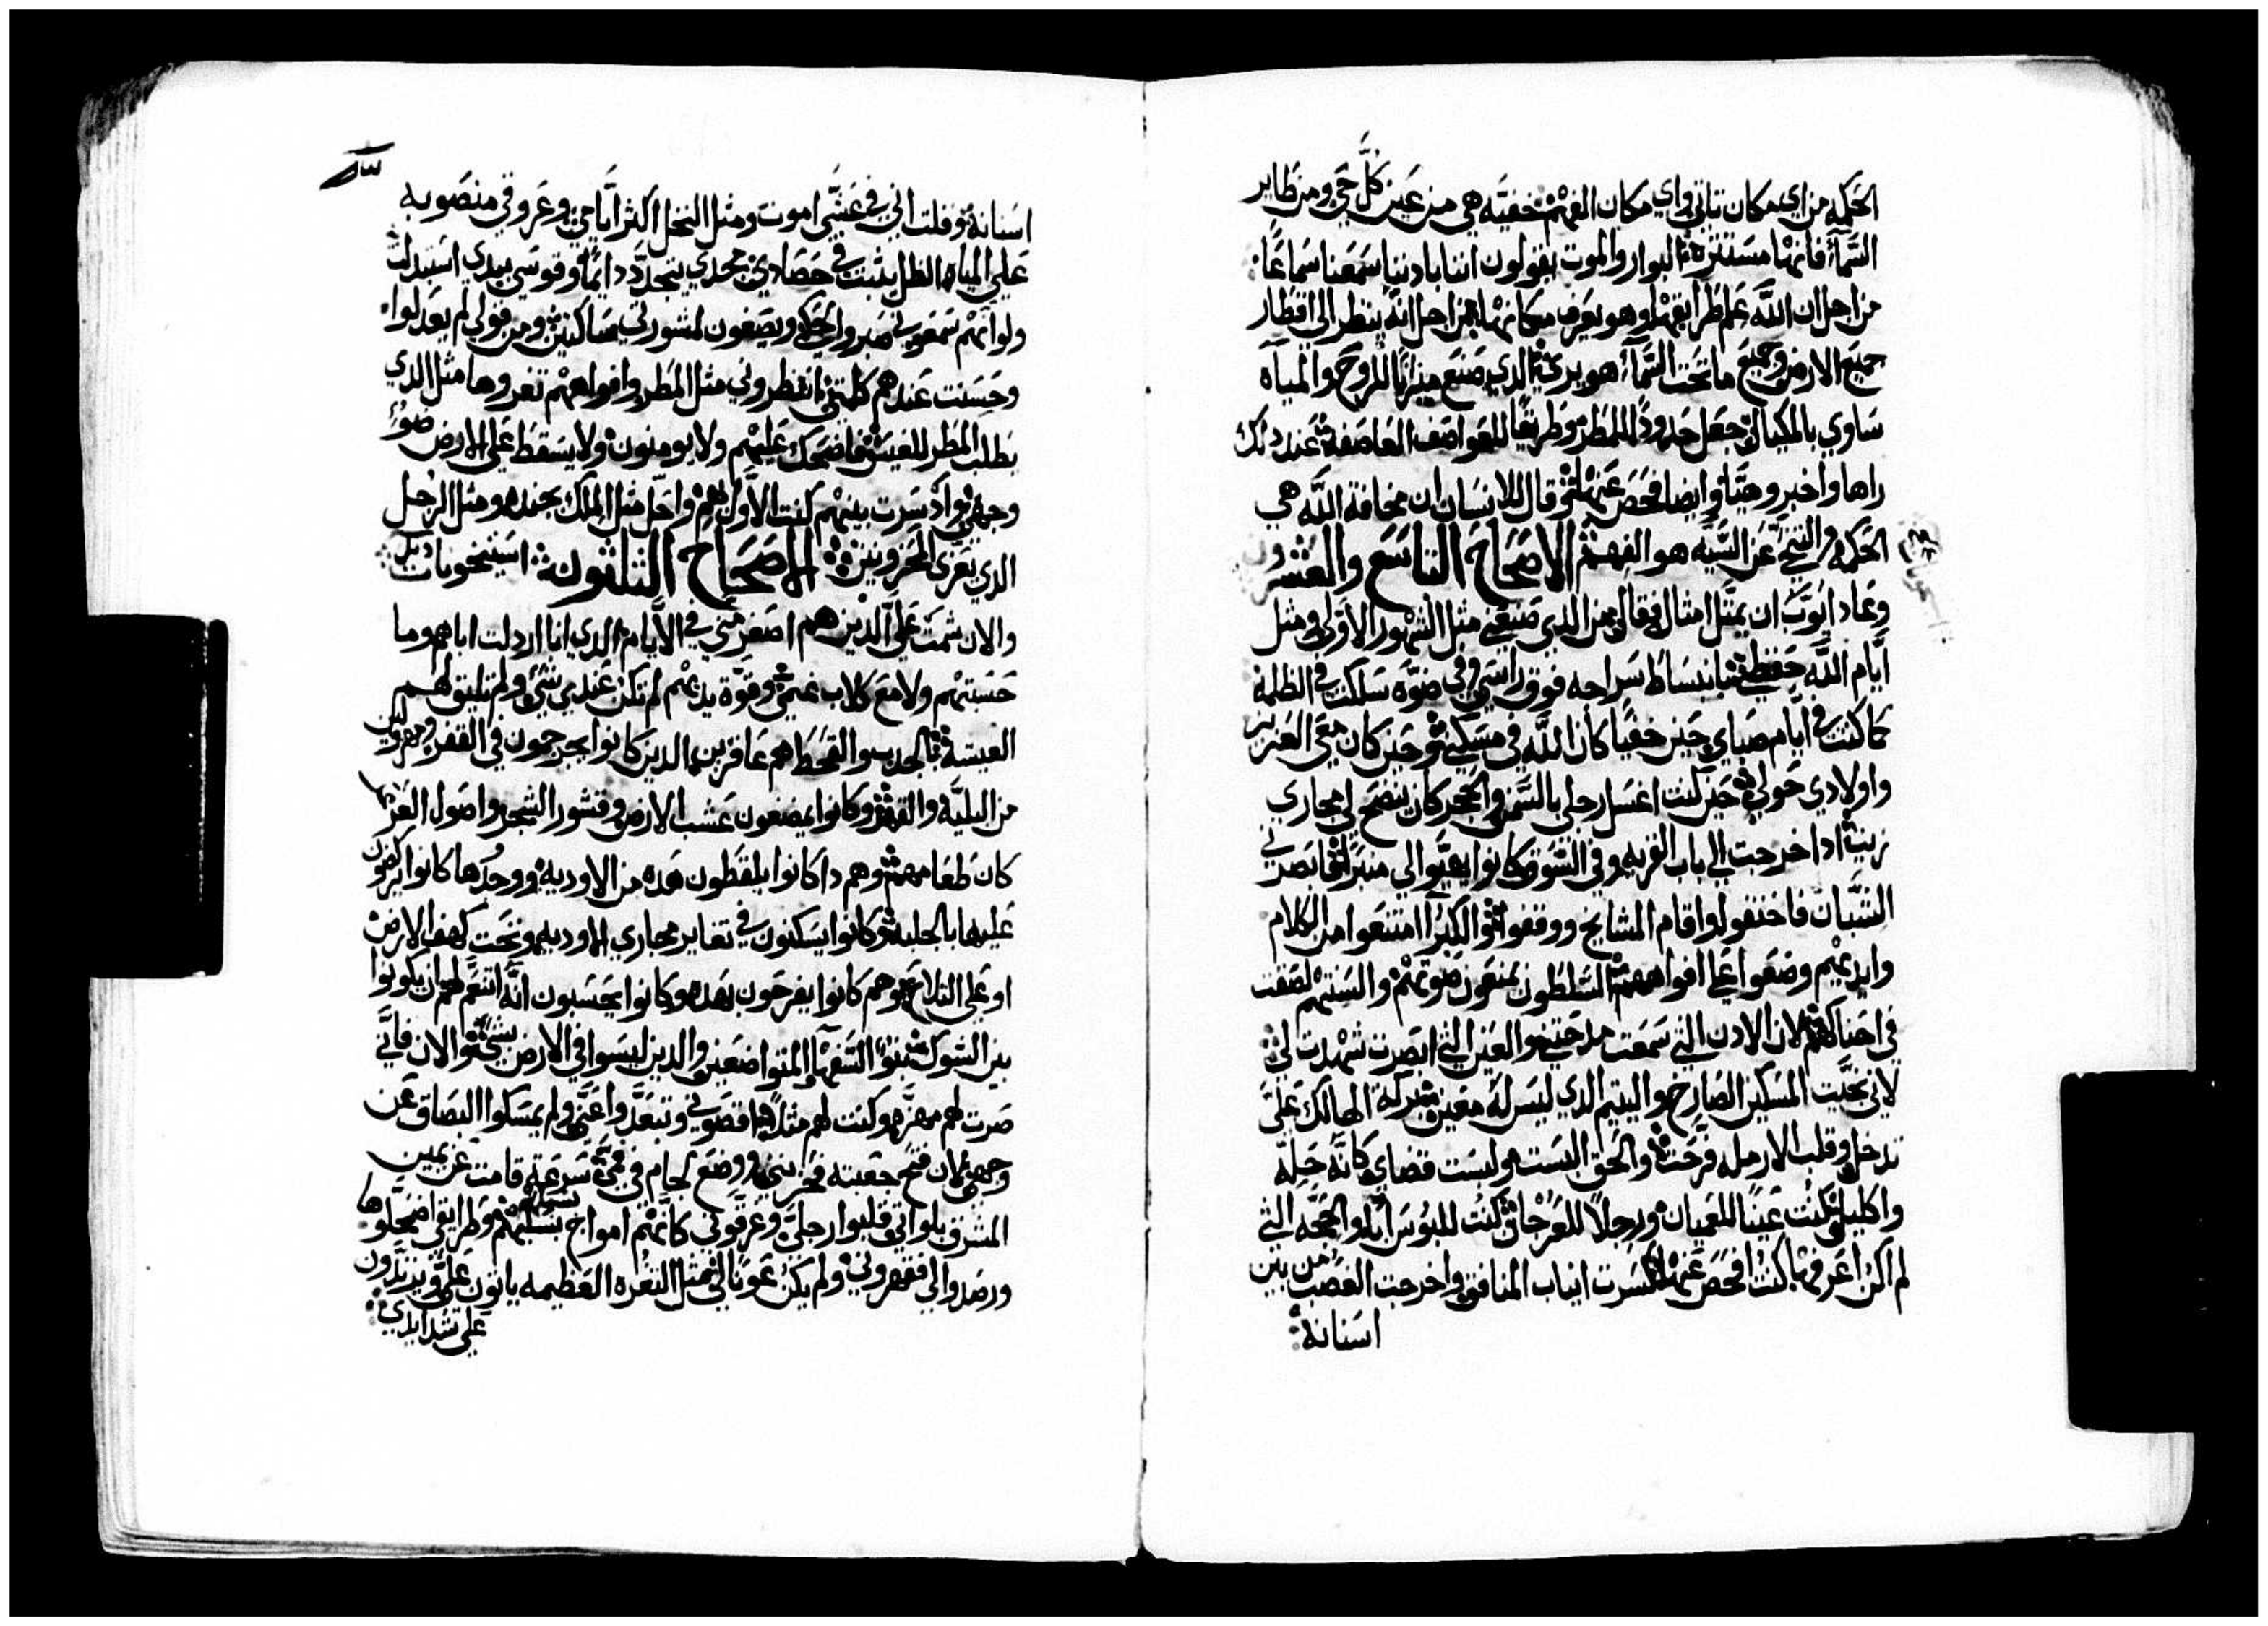 الحكمه من اي مكان تاتي واي مكان الفهم خفيه هي من عين كل حي ومن طاير
السمآ فانها مستتره البوار والموت يقولون اننا بادننا سمعنا سماعًا
من اجل ان الله علم طرايقها وهو يعرف مكانها من اجل انه ينظر الى اقطار
جميع الارض وجميع ما تحت السمآ هو يرى الدي صنع ميزانًا للروح والمياه
ساوي بالمكيال جعل حدودًا للمطر وطريقًا للعواصف العاصفه عند دلك
راها واخبر وهيا وايضا فحص عنها ثم قال للانسان ان مخافة الله هي
الحكمه والتنحي عن السيه هو الفهم الاصحاح التاسع والعشرون
وعاد ايوب ان يمثل امثال فقال من الدي صنعني مثل الشهور الاولى ومثل
ايام الله حفظني بانبساط سراجه فوق راسي وفي ضوه سلكت في الظلمه
كما كنت في ايام صباي حين خفيًا كان الله في مسكني حين كان معي العزيز
واولادي حولي حين كنت اغسل رجلي بالسمن والحجر كان ينضح لي مجاري
زيت ادا خرجت الي باب القريه وفي السوق كانوا يهيوا لي منبرًا ابصرني
الشبان فاختفوا واقام المشايخ ووقفوا والكبرآ امتنعوا من الكلام
وايديهم وضعوا على افواههم السلطون يمنعون صوتهم والسنتهم لصقت
في احناكهم لان الادن التي سمعت مدحتني والعين التي ابصرت شهدت لي
لاني نجيت المسكين الصارخ واليتيم الدي ليس له معين بركة الهالك علي
تدخل وقلب الارمله فرحت والحق البست ولبست قضاي كانه حله
واكليل كنت عينًا للعميان ورجلًا للعرجان كنت للبوسا ابا والحجه التي
لم اكن اعرفها كنت افحص عنها كسرت انياب المنافق واخرجت الغصب من بين
اسنانه
اسنانه وقلت اني في عشي اموت ومثل النخل اكثر ايامي وعروقي منصوبه
على المياه الظل يثبت في حصادي مجدي يتجدد دايمًا وقوسي بيدي استبدلت
ولو انهم سمعوني صبروا ويصغون لمشورتي ساكتين ومن قولي لم يعدلوا
وحسنت عندهم كلمتي انتظروني مثل المطر وافواههم تغروها مثل الدي
يطلب المطر للغيش فاضحك عليهم ولا يومنون ولا يسقط على الارض ضوء
وجهي واد سرت بينهم كنت الاول لهم واحل مثل الملك بجنده ومثل الرجل
الدي يعزى المحزونين الاصحاح الثلثون استنحو بات
والان شمت علي الدين هم اصغر مني في الايام الدي انا اردلت اباهم وما
حسبتهم ولا مع كلاب غنمي وقوة يديهم لم تكن عندي شي ولم تليق لهم
العيشة بالجدب والقحط هم عاقرين الدين كانوا يجرجمون في القفر
من البليه والقهر وكانوا يمضغون عشب الارض وقشور الشجر واصول العرعر
كان طعامهم وهم دا كانوا يلقطون هده من الاوديه ووجدها كانوا يركضون
عليها بالجلبه كانوا يسكنون في تغاير مجاري الاوديه وتحت كهف الارض
او على التلاع وهم كانوا يفرحون بهده وكانوا يحسبون انه التنعم لهم ان يكونوا
بين الشوك بنوا السفهآ والمتواضعين والدين ليسوا في الارض بشي والان فاني
صرت لهم مهزه وكنت لهم مثلًا اقصوني وتبعدوا عني ولم يمسكوا البصاق عن
وجهي لان فتح جعبته فحزنني ووضع لجام في فمي سرعة قامت عن يمين
المشرق بلواني قلبوا رجلي وغرقوني كانهم امواج بسبلهم وطرايقي اضمحلوها
ورصدوا لي فقهروني ولم يكن عونًا لي مثل الثغره العظيمه ياتون علي ويزيدون
على شدايدي